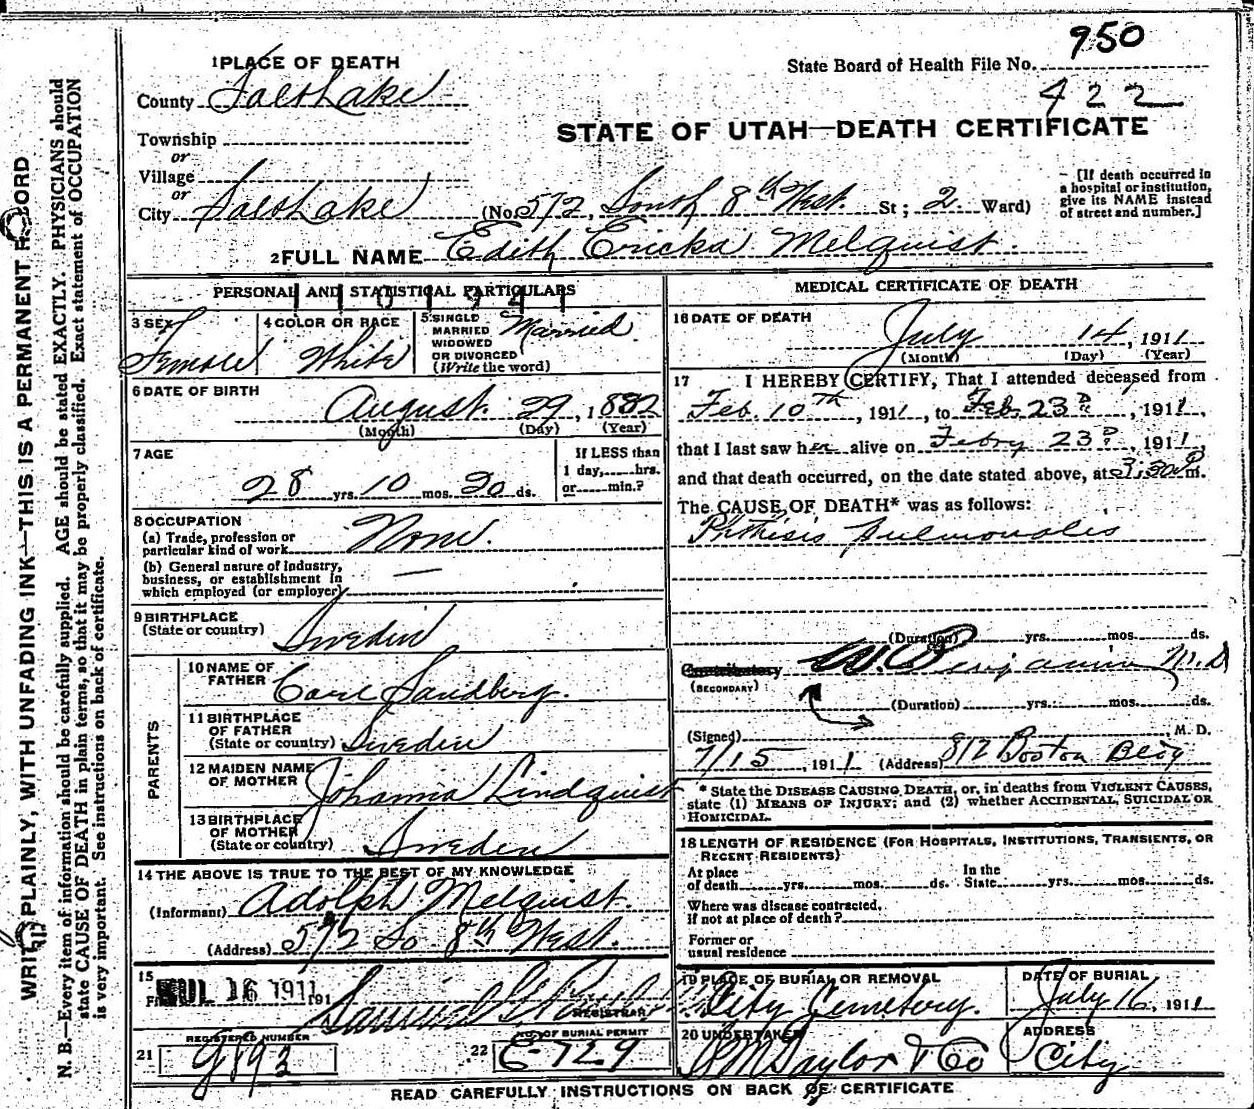 950
State Board of Health File No.
422
1 PLACE OF DEATH
County Salt Lake
STATE OF UTAH—DEATH CERTIFICATE
Township
or
Village
or
City Salt Lake (No. 572, South 8th West. St; 2. Ward)
[If death occurred in a hospital or institution, give its NAME instead of street and number.]
2 FULL NAME Edith Ericka Melquist.
PERSONAL AND STATISTICAL PARTICULARS
3 SEX Female
4 COLOR OR RACE White
5 SINGLE MARRIED WIDOWED OR DIVORCED (Write the word) Married
6 DATE OF BIRTH
August. 29, 1882
(Month) (Day) (Year)
7 AGE
28 yrs. 10 mos. 20 ds.
If LESS than 1 day, hrs. or min.?
8 OCCUPATION
(a) Trade, profession or particular kind of work None.
(b) General nature of Industry, business, or establishment in which employed (or employer) —
9 BIRTHPLACE
(State or country) Sweden
PARENTS
10 NAME OF FATHER Carl Sandberg.
11 BIRTHPLACE OF FATHER (State or country) Sweden
12 MAIDEN NAME OF MOTHER Johanna Lindquist
13 BIRTHPLACE OF MOTHER (State or country) Sweden
14 THE ABOVE IS TRUE TO THE BEST OF MY KNOWLEDGE
(Informant) Adolph Melquist.
(Address) 572 So 8th West.
15
JUL 16 1911 191
REGISTRAR
REGISTERED NUMBER
21
NO. OF BURIAL PERMIT
22 E-729
MEDICAL CERTIFICATE OF DEATH
16 DATE OF DEATH
July 14, 1911
(Month) (Day) (Year)
17 I HEREBY CERTIFY, That I attended deceased from
Feb. 10th, 1911, to Feb. 23d, 1911,
that I last saw her alive on Febry 23d, 1911,
and that death occurred, on the date stated above, at 3:30 P m.
The CAUSE OF DEATH* was as follows:
Phthisis Pulmonalis
(Duration) yrs. mos. ds.
Contributory W. Benjamin M.D
(SECONDARY)
(Duration) yrs. mos. ds.
(Signed) M. D.
7/15, 1911 (Address) 812 Boston Bldg
* State the DISEASE CAUSING DEATH, or, in deaths from VIOLENT CAUSES,
state (1) MEANS OF INJURY; and (2) whether ACCIDENTAL, SUICIDAL OR
HOMICIDAL.
18 LENGTH OF RESIDENCE (FOR HOSPITALS, INSTITUTIONS, TRANSIENTS, OR
RECENT RESIDENTS)
At place of death yrs. mos. ds. In the State yrs. mos. ds.
Where was disease contracted,
if not at place of death?
Former or
usual residence
19 PLACE OF BURIAL OR REMOVAL City Cemetery.
DATE OF BURIAL July 16, 1911
20 UNDERTAKER Taylor & Co
ADDRESS City
READ CAREFULLY INSTRUCTIONS ON BACK OF CERTIFICATE
WRITE PLAINLY, WITH UNFADING INK—THIS IS A PERMANENT RECORD
N. B.—Every item of information should be carefully supplied. AGE should be stated EXACTLY. PHYSICIANS should
state CAUSE OF DEATH in plain terms, so that it may be properly classified. Exact statement of OCCUPATION
is very important. See instructions on back of certificate.